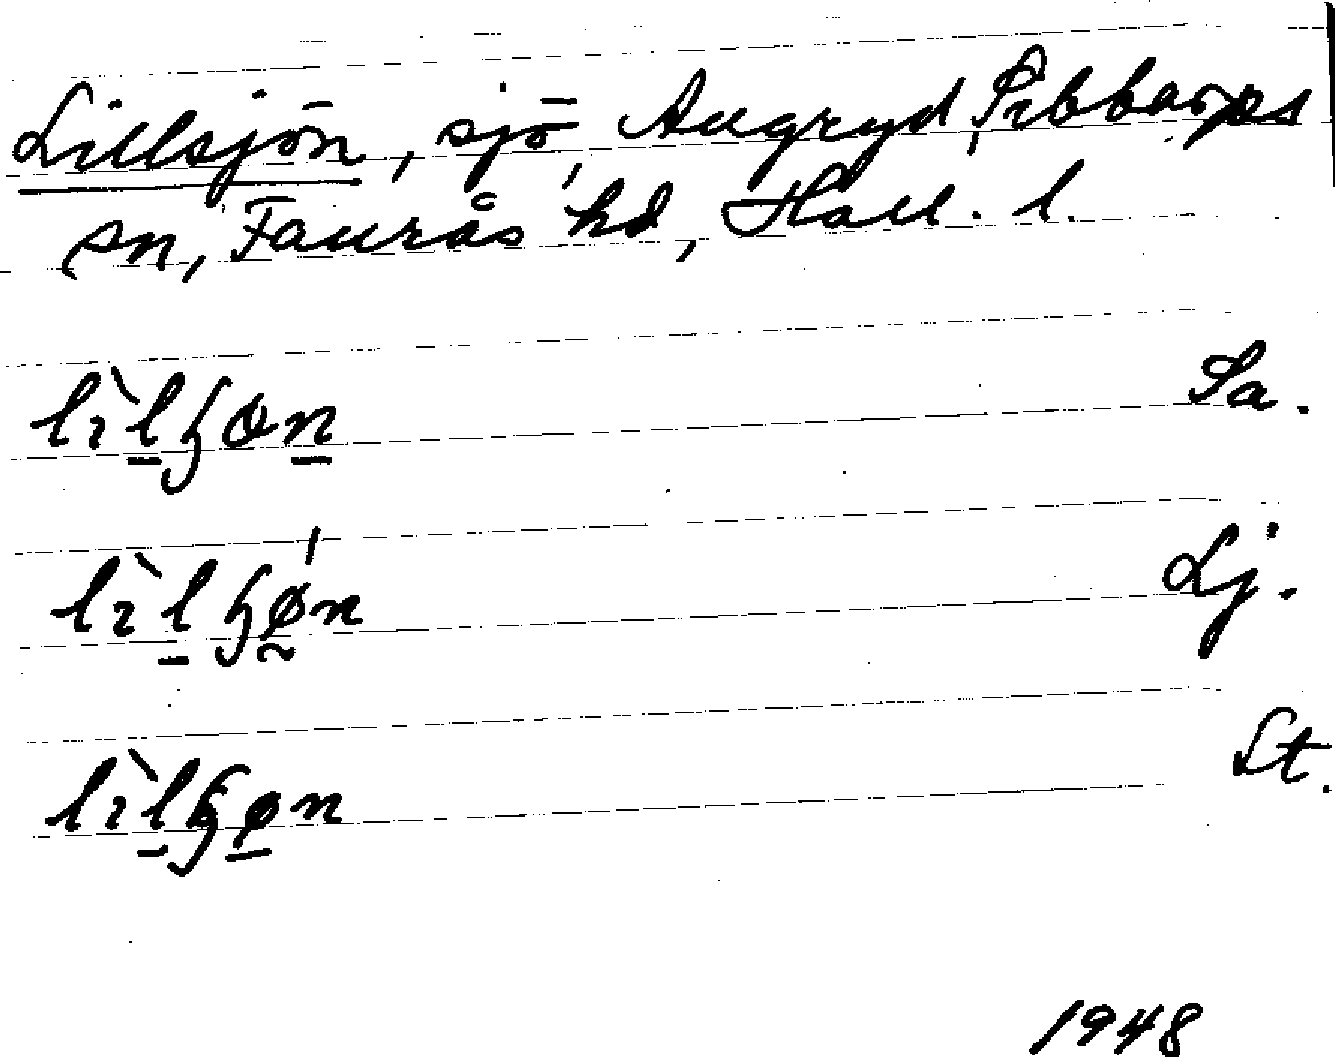 Lillsjön, sjö, Augryd, Sibbarps
sn, Faurås hd, Hall. l.
lìlɧøn Sa.
lìlɧǿn Lj.
lìlɧøn St.
1948